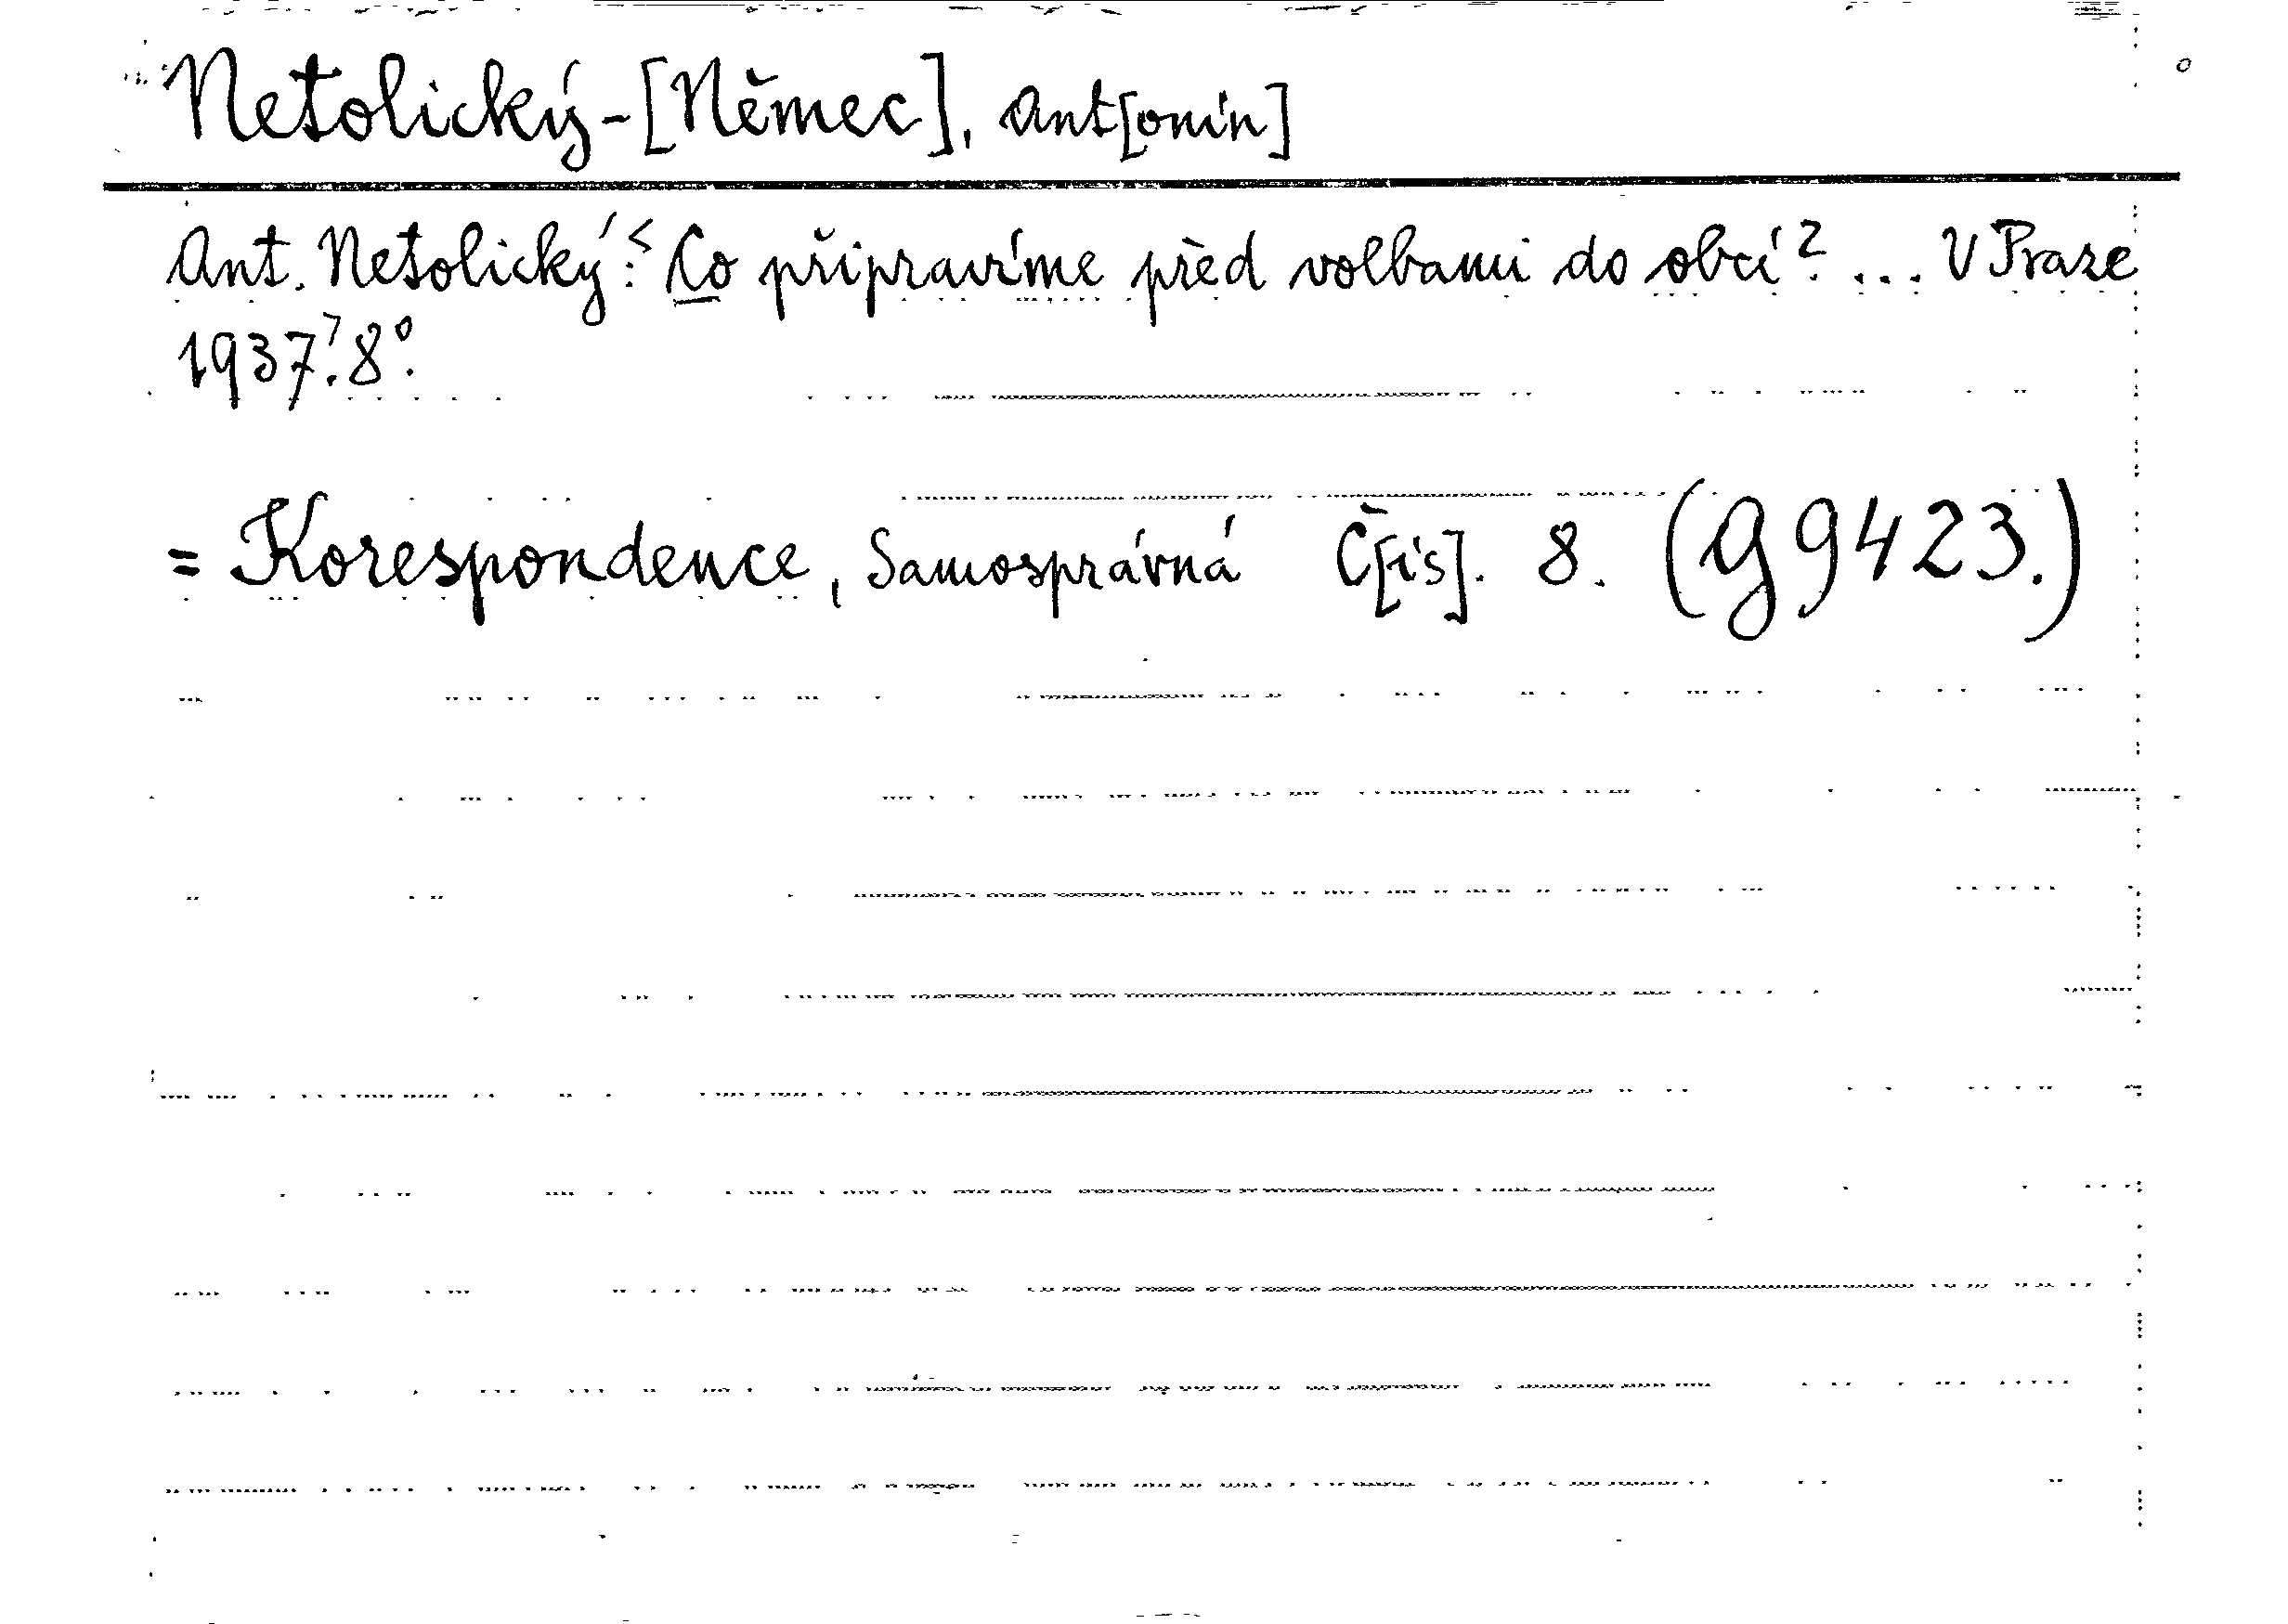 Netolický-[Němec], Ant[onín]
Ant. Netolický: Co připravíme před volbami do obcí? ... V Praze
1937. 8°.
= Korespondence, Samosprávná Č[ís]. 8. (G 9423.)